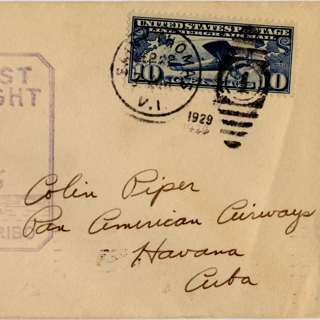 ST
GHT
UNITED STATES POSTAGE
LINDBERGH AIR MAIL
10 CENTS 10
THOMAS
V.I.
1929
1929
RIBB
Colin Piper
Pan American Airways
Havana
Cuba